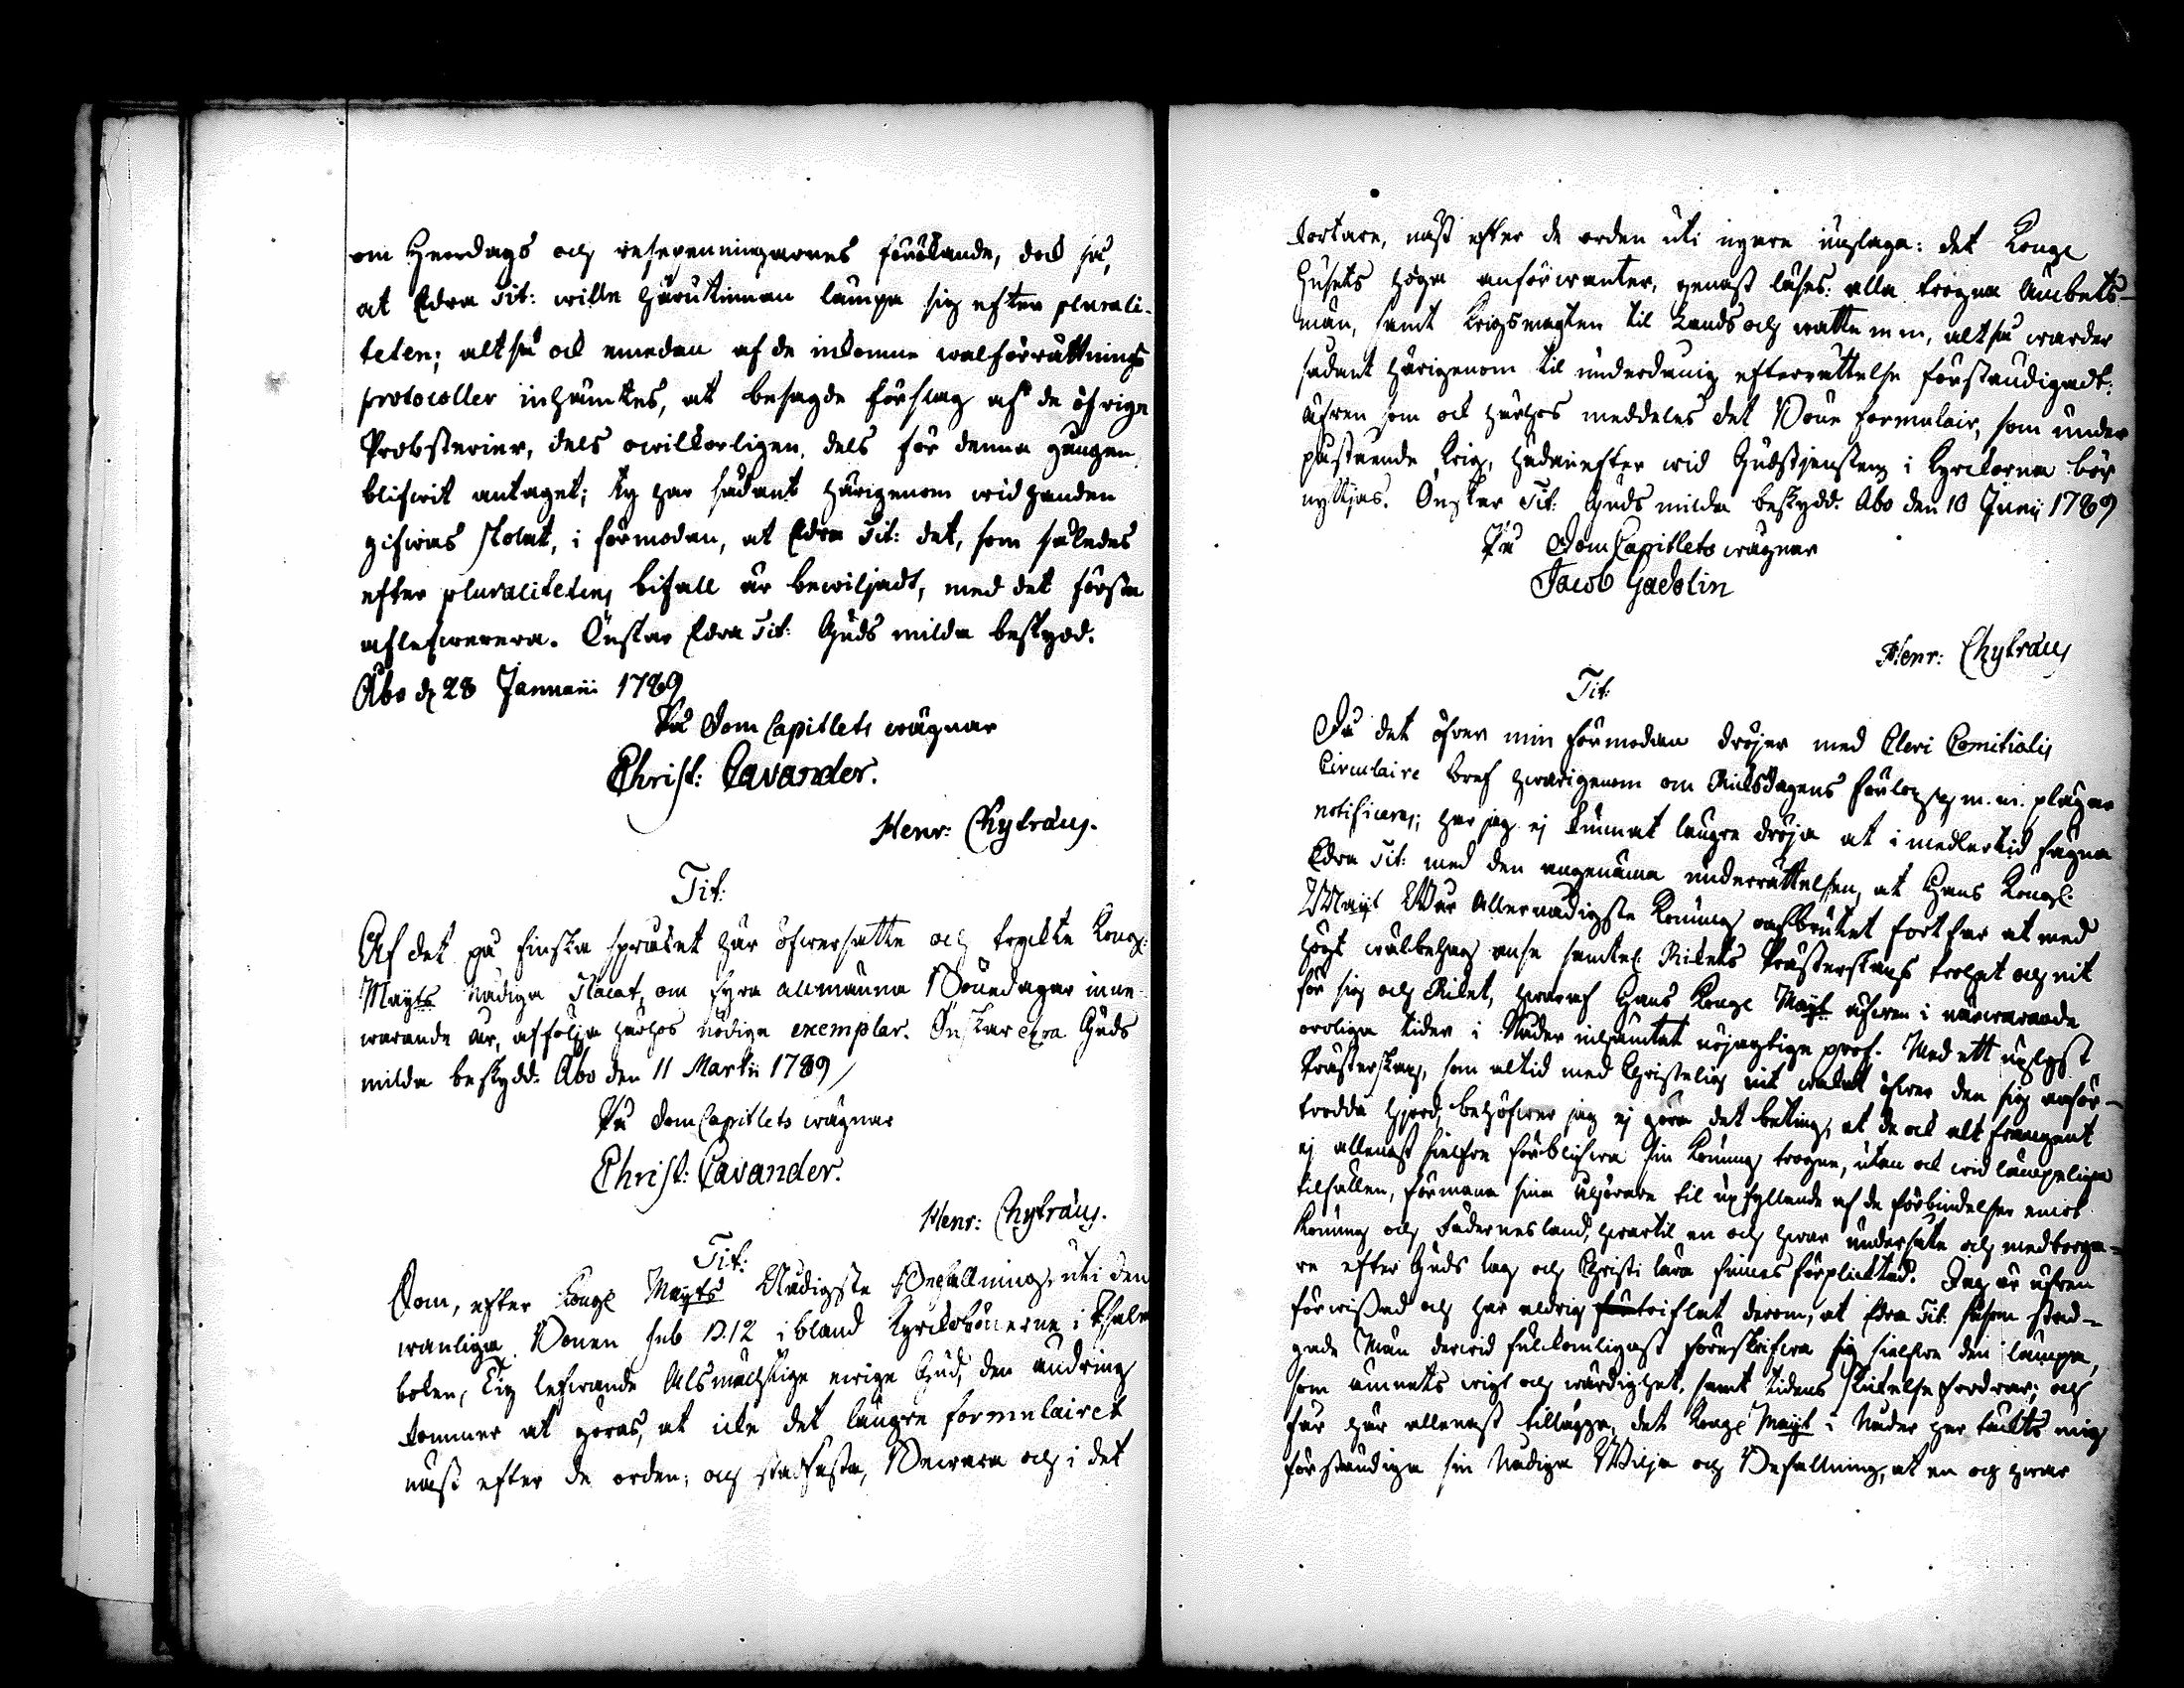 om Herrdags och resepenningarnes förökande, dock så,
at Edra Tit: wille härutinnan lämpa sig efter plurali-
teten; altså ock emedan af de inkomne walförrättnings
protocoller inhämtes, at besagde förslag af de öfriga
Probsterier, dels owilkorligen, dels för denna gången
blifwit antaget; ty har sådant härigenom widhanden
gifwas skolat, i förmodan, at Edra Tit: det, som således
efter pluralitetens bifall är bewiljadt, med det första
aflefwerera. Önskar Edra Tit: Guds milda beskydd.
Åbo d 28 Januarii 1789
På DomCapitlets wägnar
Christ: Cavander.
Henr: Chytræus.
Tit:
Af det på finska språket här öfwersatte och tryckte Kongl:
Mayts Nådiga Placat, om fyra allmänna Bönedagar inne-
warande år, afföljer härhos nödige exemplar. Önskar Edra Guds
milda beskydd. Åbo den 11 Martii 1789
På DomCapitlets wägnar
Christ: Cavander.
Henr: Chytræus.
Tit:
Som, efter Kongl Mayts Nådigste Befallning, uti den
wanliga Bönen sub N.12 ibland Kyrckobönerne i Psalm
boken, Tig lefwande Alsmächtige ewige Gud, den ändring
kommer at göras, at icke det längre formulairet
näst efter de orden; och stadfästa, Bewara och i det
kortare, näst efter de orden uti nyare uplaga: det Kongl
Husets höga anförwanter, genast läses: alla trogna Ämbets-
män, samt Krigsmagten til Lands och watten m m, altså warder
sådant härigenom til underdånig efterrättelse förständigadt:
äfwen som ock härhos meddeles det Böne formulair, som under
påstående Krig, hädanefter wid Gudstjensten i Kyrckorna bör
nyttjas. Önskar Tit: Guds milda beskydd. Åbo den 10 Junii 1789
På DomCapitlets wägnar
Jacob Gadolin
Henr: Chytræus
Tit:
Då det öfwer min förmodan dröjer med Cleri Comitialis
Circulaire bref hwarigenom om Riksdagens förlopp m.m. plägar
notificeras; har jag ej kunnat längre dröja at imedlertid fägna
Edra Tit: med den angenäma underrättelsen, at Hans Kongl.
Mayt Wår Allernådigste Konung oafbrutet fortfar at med
högt wälbehag anse samtel. Rikets Prästerskaps trohet och nit
för sig och Riket, hwaraf Hans Kongl Mayt äfwen i närwarande
oroliga tider i Nåder inhämtat nöjagtige prof. Med ett uplyst
Prästerskap, som altid med Christelig nit wakat öfwer den sig anför-
trodda hjord, behöfwer jag ej göra det beting, at de ock alt framgent
ej allenast sielfwe förblifwa sin Konung trogne, utan ock wid lämpeliga
tilfällen, förmana sina åhörare til upfyllande af de förbindelser emot
Konung och Fädernesland, hwartil en och hwar undersåte och medborga-
re efter Guds lag och Christi lära finnes förplicktad. Jag är äfwen
förwissad och har aldrig twiflat derom, at Edra Tit: såsom stad-
gade Män derwid fulkomligast föreskrifwa sig sielfwe den lämpa,
som ämnets wigt och wärdighet, samt tidens skickelse fordrar; och
får här allenast tillägga, det Kongl Mayt i Nåder har täckts mig
förständiga sin Nådiga Wilja och Befallning, at en och hwar